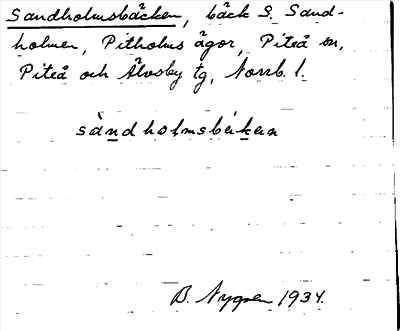 Sandholmsbäcken, bäck S. Sand-
holmen, Pitholms ägor, Piteå sn,
Piteå och Älvsby tg, Norrb. l.
sàndholmsbäkan
B. Nygren 1934.